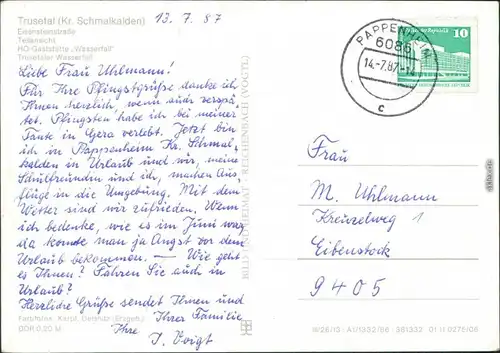 Trusetal (Kr. Schmalkalden)
13.7.87
Eisensteinstraße
Teilansicht
HO-Gaststätte „Wasserfall“
Trusetaler Wasserfall
Liebe Frau Uhlmann!
Für Ihre Pfingstgrüße danke ich
Ihnen herzlich, wenn auch verspä-
tet. Pfingsten habe ich bei meiner
Tante in Gera verlebt. Jetzt bin
ich in Pappenheim Kr. Schmal,
kalden in Urlaub und wir, meine
Schulfreundin und ich, machen Aus,
flüge in die Umgebung. Mit dem
Wetter sind wir zufrieden. Wenn
ich bedenke, wie es im Juni war,
da konnte man ja Angst vor dem
Urlaub bekommen. — Wie geht
es Ihnen? Fahren Sie auch in
Urlaub?
Herzliche Grüße sendet Ihnen und
Ihrer Familie
Ihre
J. Voigt
DDR 0,20 M
BILD UND HEIMAT REICHENBACH (VOGTL)
PAPPENHEIM
6086
14.-7.87-14
c
10
Frau
M. Uhlmann
Kreuzelweg 1
Eibenstock
9405